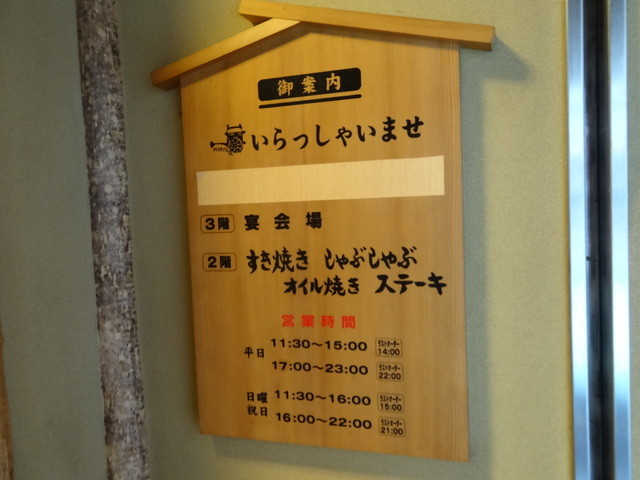 御案内
いらっしゃいませ
3階 宴会場
2階 すき焼き しゃぶしゃぶ
オイル焼き ステーキ
営業時間
平日 11:30〜15:00 ラストオーダー 14:00
17:00〜23:00 ラストオーダー 22:00
日曜 祝日 11:30〜16:00 ラストオーダー 15:00
16:00〜22:00 ラストオーダー 21:00